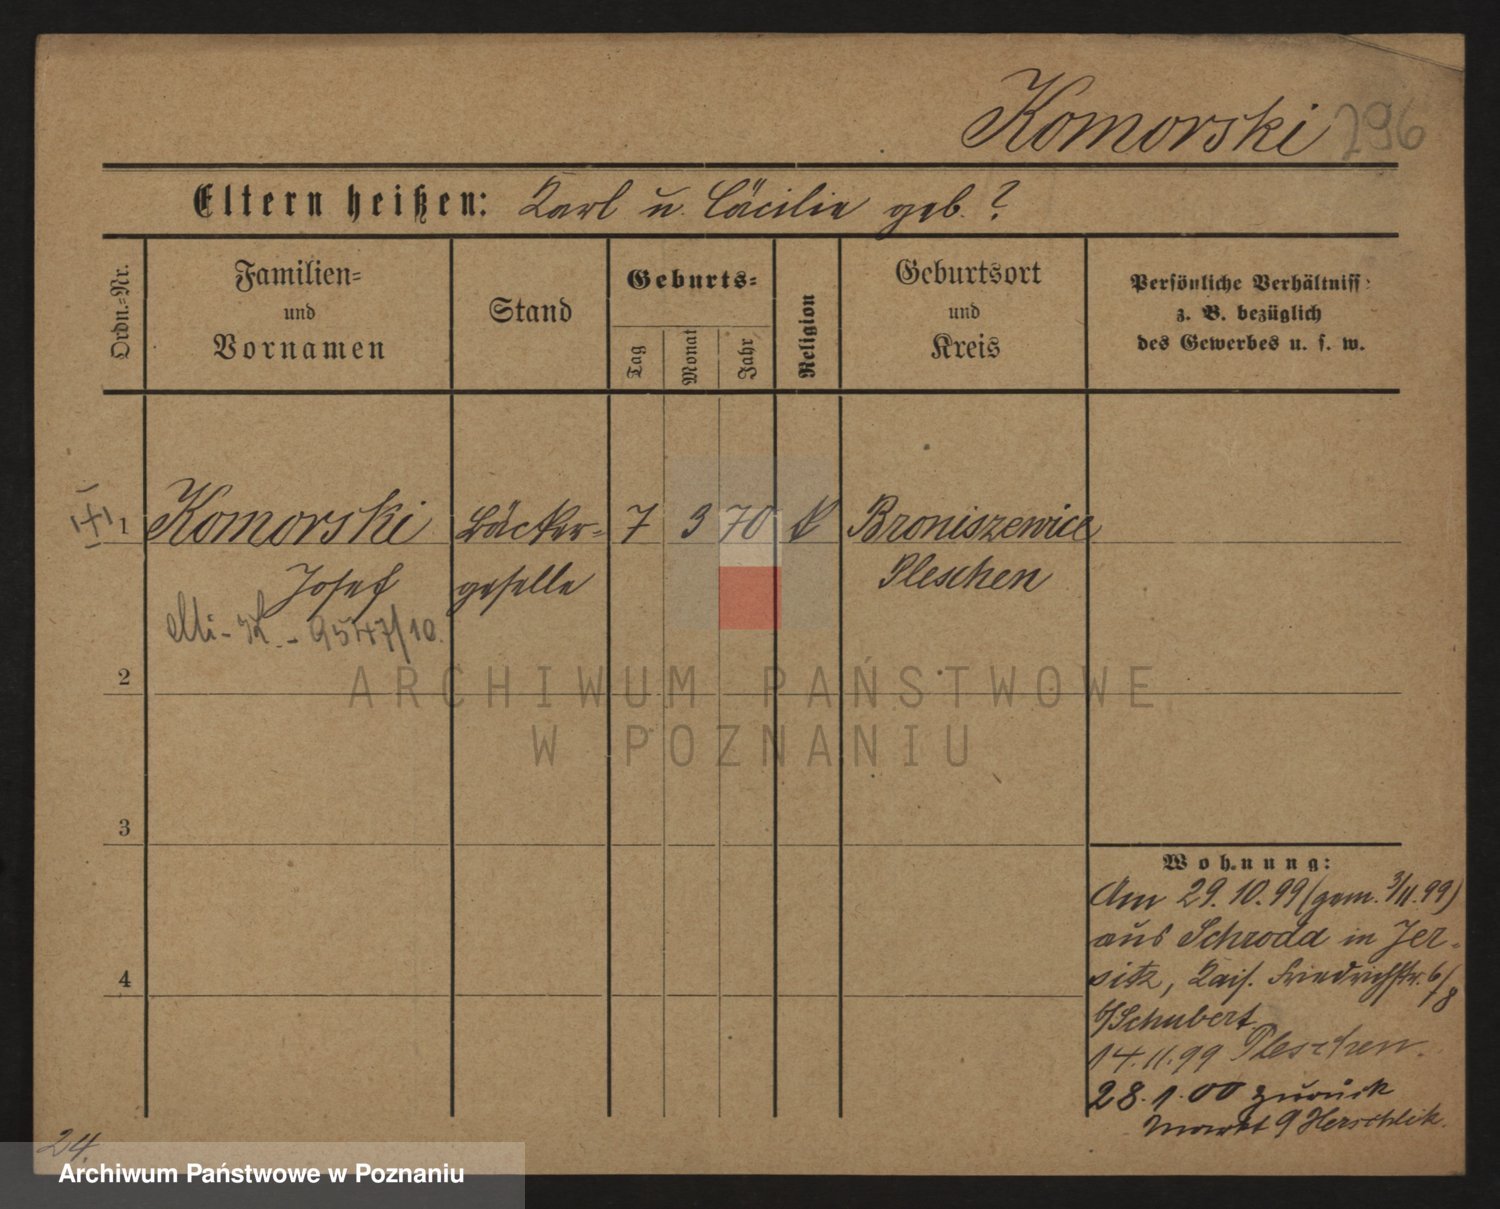 Komorski 796
Eltern heißen: Karl u. Cäcilie geb. ?
Ordn.=Nr.
Familien=
und
Vornamen
Stand
Geburts=
Tag
Monat
Jahr
Religion
Geburtsort
und
Kreis
Persönliche Verhältniss
z. B. bezüglich
des Gewerbes u. s. w.
1 Komorski Bäcker= 7 3 70 k Broniszewice
Josef geselle Pleschen
9547/10.
2
ARCHIWUM PAŃSTWOWE
W POZNANIU
3
4
Wohnung:
Am 29.10.99 (gem. 3/11.99)
aus Schroda in Jer=
sitz, Kais. Friedrichstr. 6/8
b/Schubert
14.11.99 Pleschen.
28.1.00 zurück
Markt 9 Herschlik.
24.
Archiwum Państwowe w Poznaniu